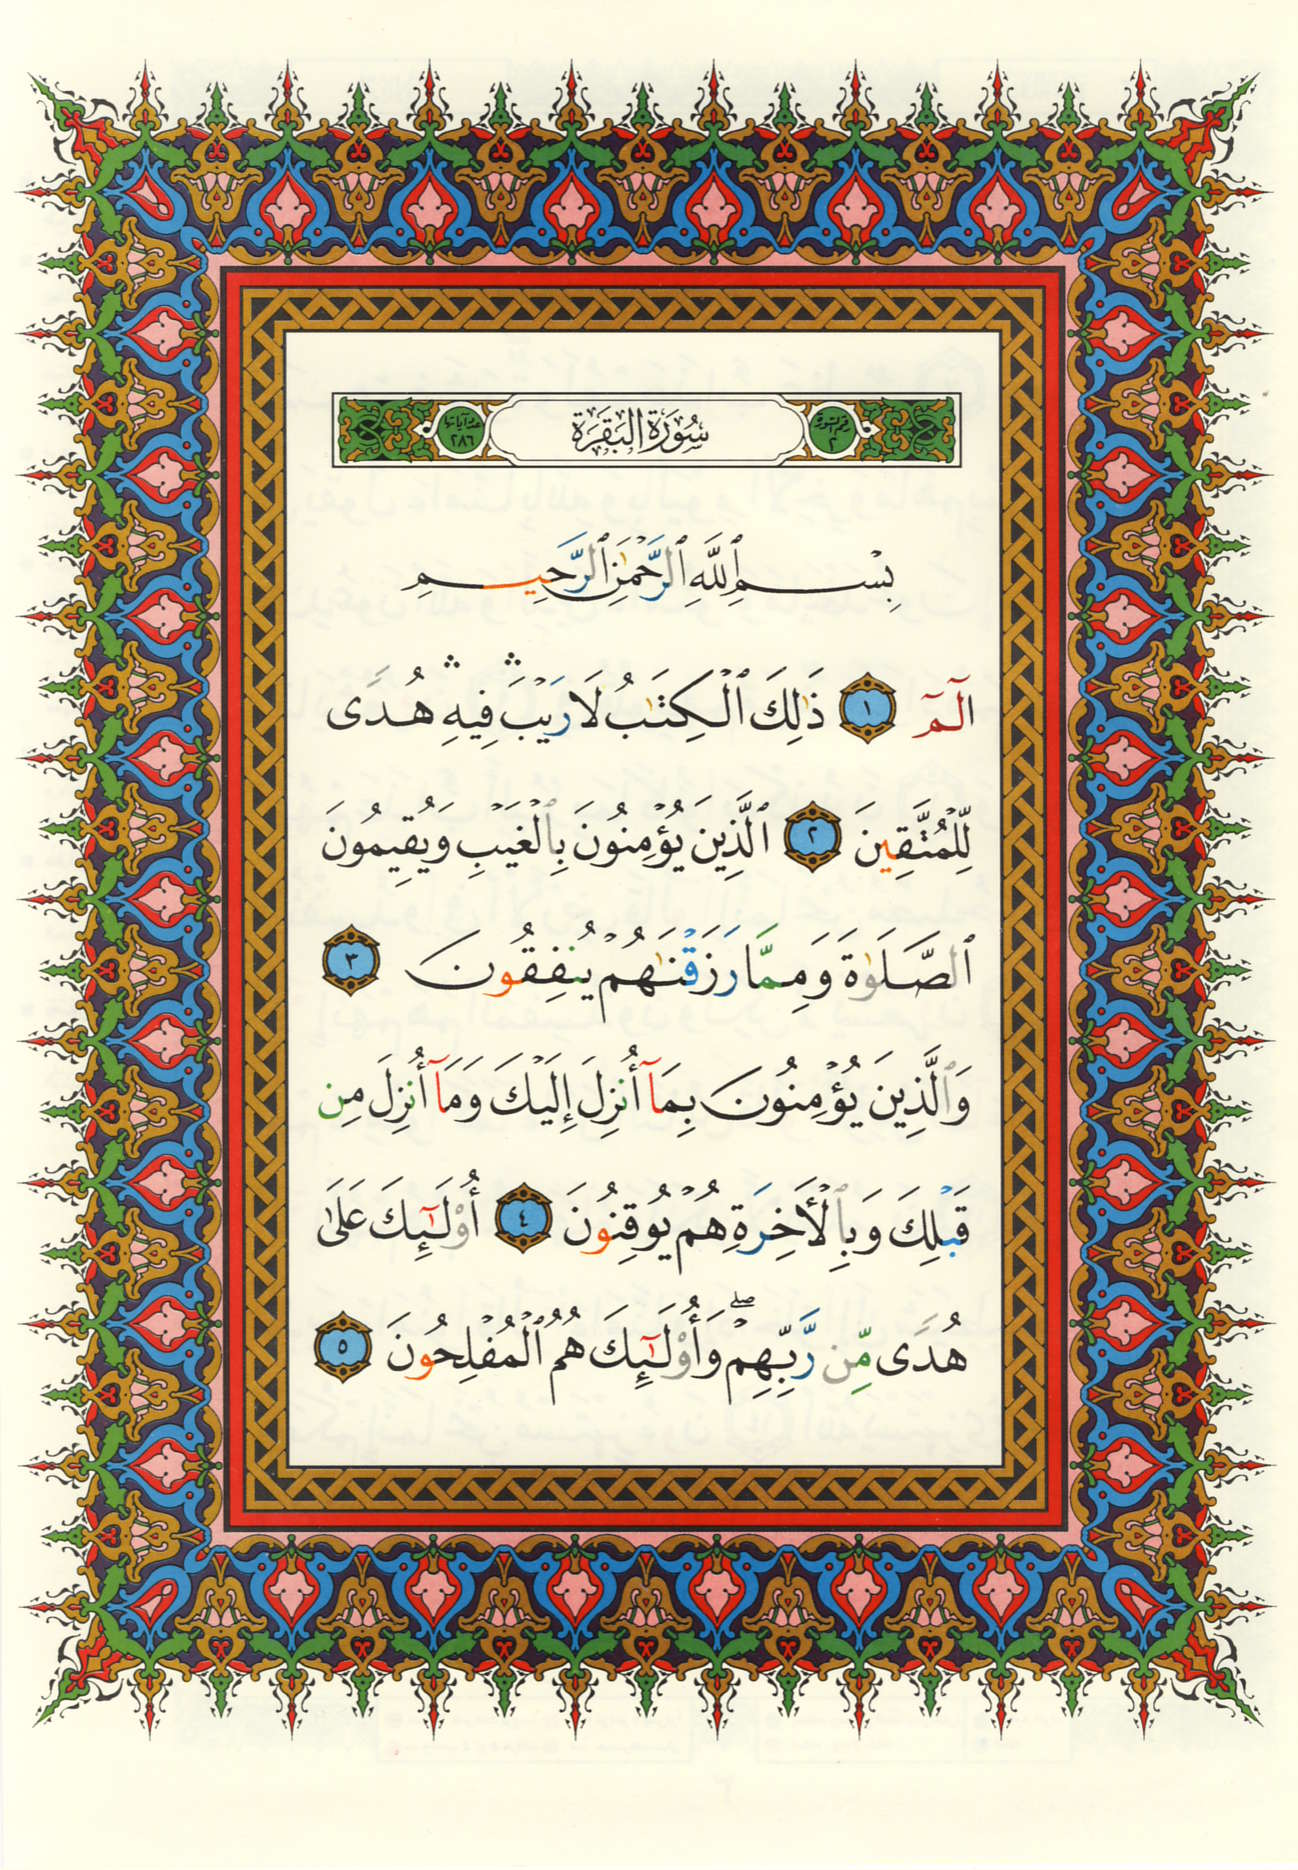 عدد آياتها ٢٨٦ سُورَةُ البَقَرَةِ رقم السورة ٢
بِسْمِ ٱللَّهِ ٱلرَّحْمَٰنِ ٱلرَّحِيمِ
الٓمٓ ١ ذَٰلِكَ ٱلْكِتَٰبُ لَا رَيْبَ ۛ فِيهِ ۛ هُدًى
لِّلْمُتَّقِينَ ٢ ٱلَّذِينَ يُؤْمِنُونَ بِٱلْغَيْبِ وَيُقِيمُونَ
ٱلصَّلَوٰةَ وَمِمَّا رَزَقْنَٰهُمْ يُنفِقُونَ ٣
وَٱلَّذِينَ يُؤْمِنُونَ بِمَآ أُنزِلَ إِلَيْكَ وَمَآ أُنزِلَ مِن
قَبْلِكَ وَبِٱلْأَخِرَةِ هُمْ يُوقِنُونَ ٤ أُو۟لَٰٓئِكَ عَلَىٰ
هُدًى مِّن رَّبِّهِمْ ۖ وَأُو۟لَٰٓئِكَ هُمُ ٱلْمُفْلِحُونَ ٥